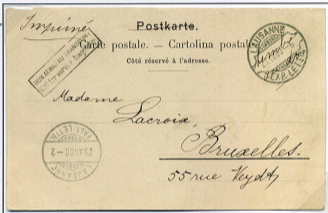 Imprimé
Postkarte.
Carte postale. — Cartolina postale.
Côté réservé à l'adresse.
LAUSANNE
EXP. LETTR.
Madame
Lacroix,
Bruxelles.
55 rue Veydt,
LAUSANNE
FACT. LETTR.